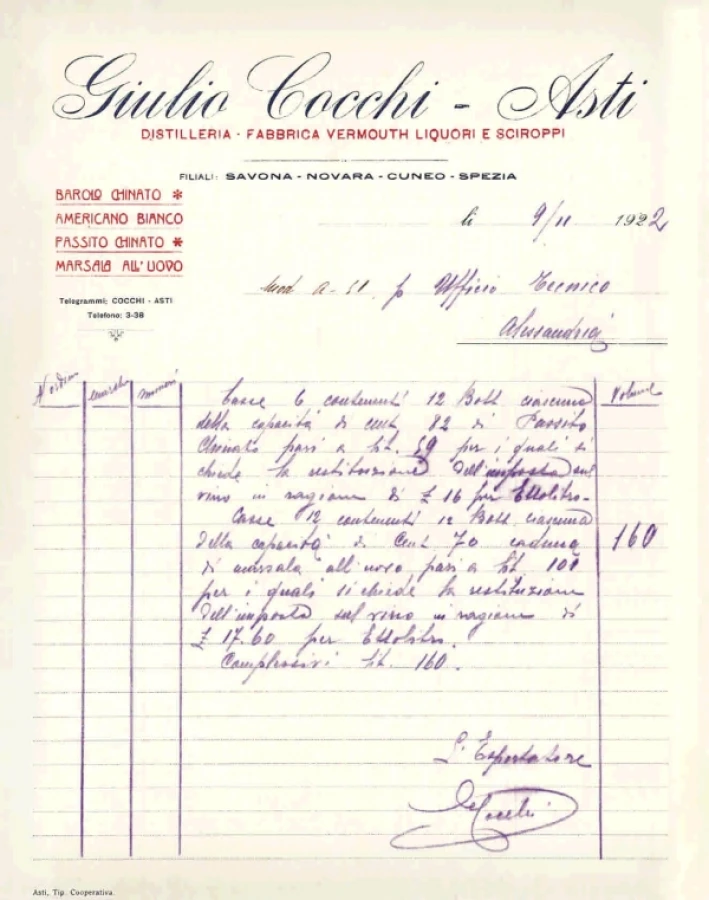 Giulio Cocchi - Asti
DISTILLERIA · FABBRICA VERMOUTH LIQUORI E SCIROPPI
FILIALI: SAVONA - NOVARA - CUNEO - SPEZIA
BAROLO CHINATO *
AMERICANO BIANCO
PASSITO CHINATO *
MARSALA ALL'UOVO
Telegrammi: COCCHI - ASTI
Telefono: 3-38
li 9/11 1922
Mod a - 51. p Ufficio Tecnico
Alessandria
N ordine marche numeri Volume
Casse 6 contenenti 12 Bott ciascuna
della capacità di cent 82 di Passito
Chinato pari a Lit. 59 per i quali si
chiede la restituzione dell'imposta sul
vino in ragione di £ 16 per Ettolitro -
Casse 12 contenenti 12 Bott ciascuna
della capacità di Cent 70 caduna 160
di marsala all'uovo pari a Lit. 101
per i quali si chiede la restituzione
dell'imposta sul vino in ragione di
£ 17.60 per Ettolitro.
Complessivi Lit. 160.
L'Esportatore
Cocchi
Asti, Tip. Cooperativa.